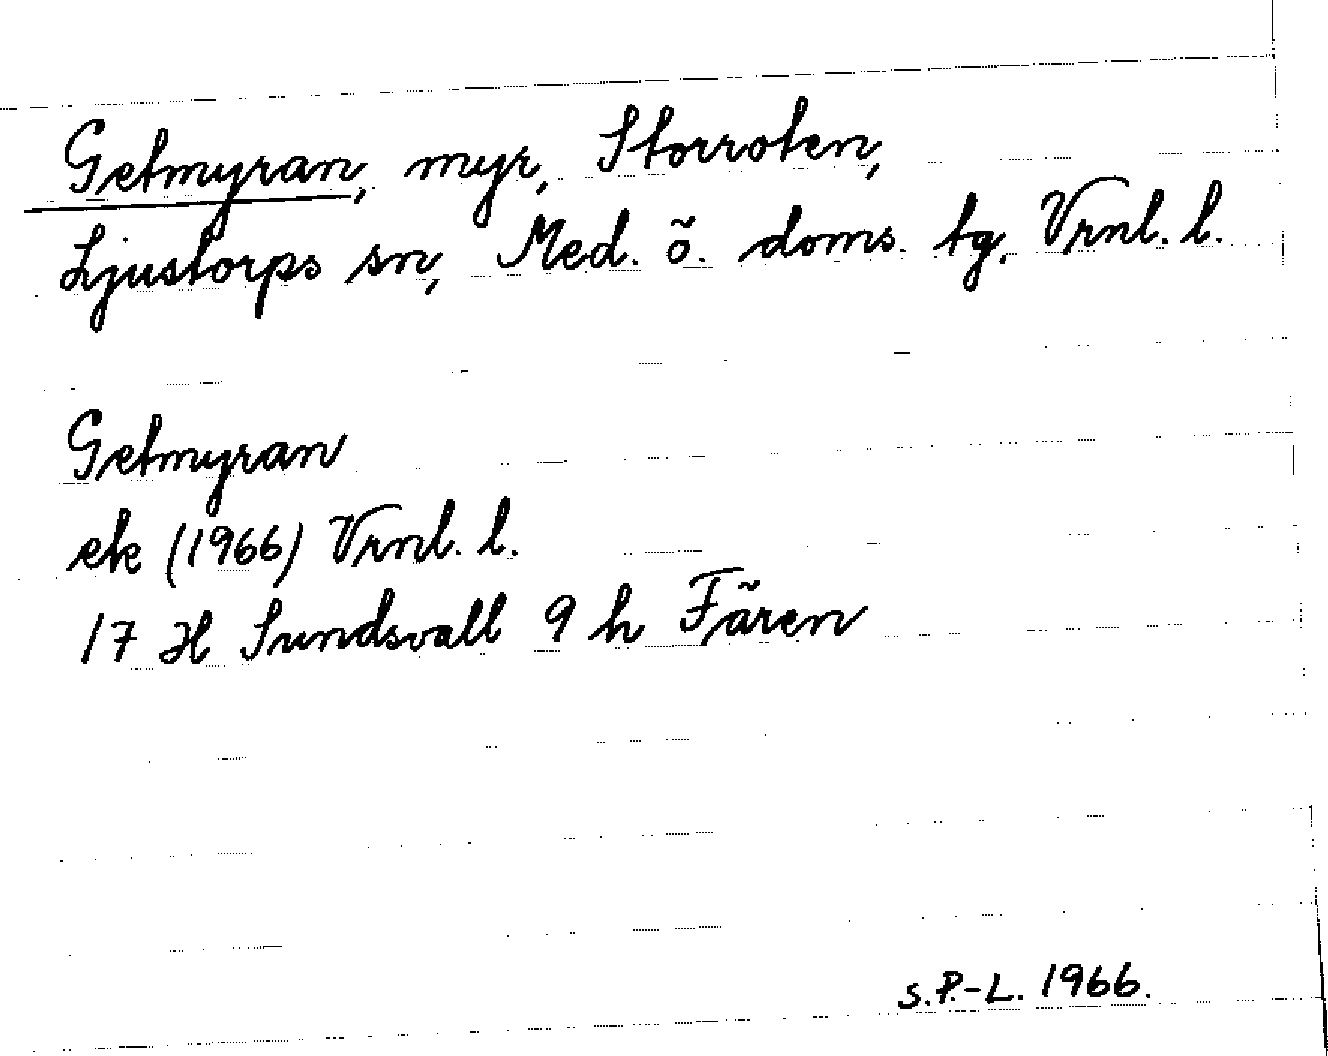 Getmyran, myr, Storroten,
Ljustorps sn, Med. ö. doms. tg, Vrnl. l.
Getmyran
ek (1966) Vrnl. l.
17 H Sundsvall 9 h Fären
S.P.-L. 1966.